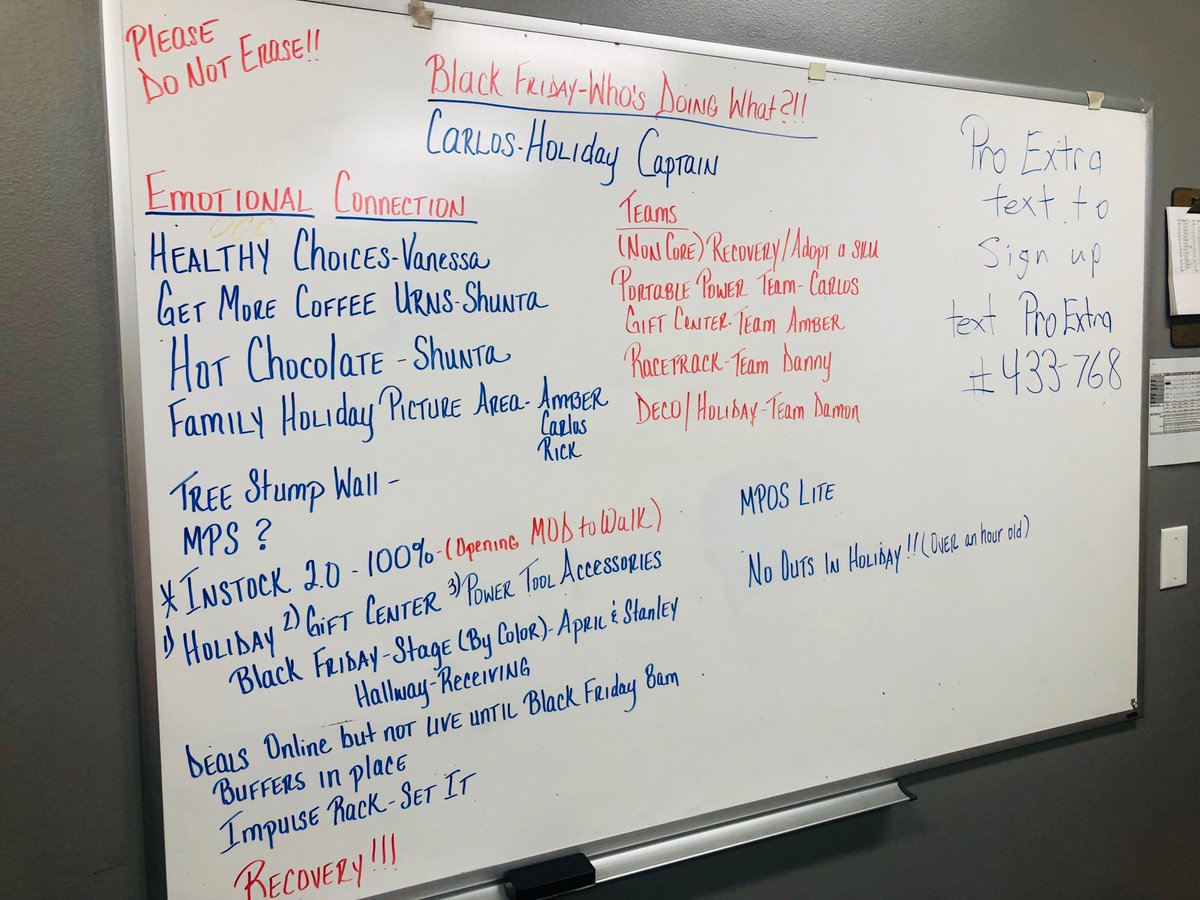 PLEASE
DO NOT ERASE!!
BLACK FRIDAY-WHO'S DOING WHAT?!!
CARLOS-HOLIDAY CAPTAIN
EMOTIONAL CONNECTION
HEALTHY CHOICES-VANESSA
GET MORE COFFEE URNS-SHUNTA
HOT CHOCOLATE - SHUNTA
FAMILY HOLIDAY PICTURE AREA- AMBER
CARLOS
RICK
TREE STUMP WALL -
MPS ?
* INSTOCK 2.0 - 100% - (OPENING MOD TO WALK)
1) HOLIDAY 2) GIFT CENTER 3) POWER TOOL ACCESSORIES
BLACK FRIDAY-STAGE (BY COLOR)- APRIL & STANLEY
HALLWAY-RECEIVING
DEALS ONLINE BUT NOT LIVE UNTIL BLACK FRIDAY 8am
BUFFERS IN PLACE
IMPULSE RACK-SET IT
RECOVERY!!!
TEAMS
(NON CORE) RECOVERY/ADOPT A SKU
PORTABLE POWER TEAM-CARLOS
GIFT CENTER-TEAM AMBER
RACETRACK-TEAM DANNY
DECO/HOLIDAY-TEAM DAMON
MPOS LITE
NO OUTS IN HOLIDAY!! (OVER AN HOUR OLD)
Pro Extra
text to
Sign up
text ProExtra
#433-768